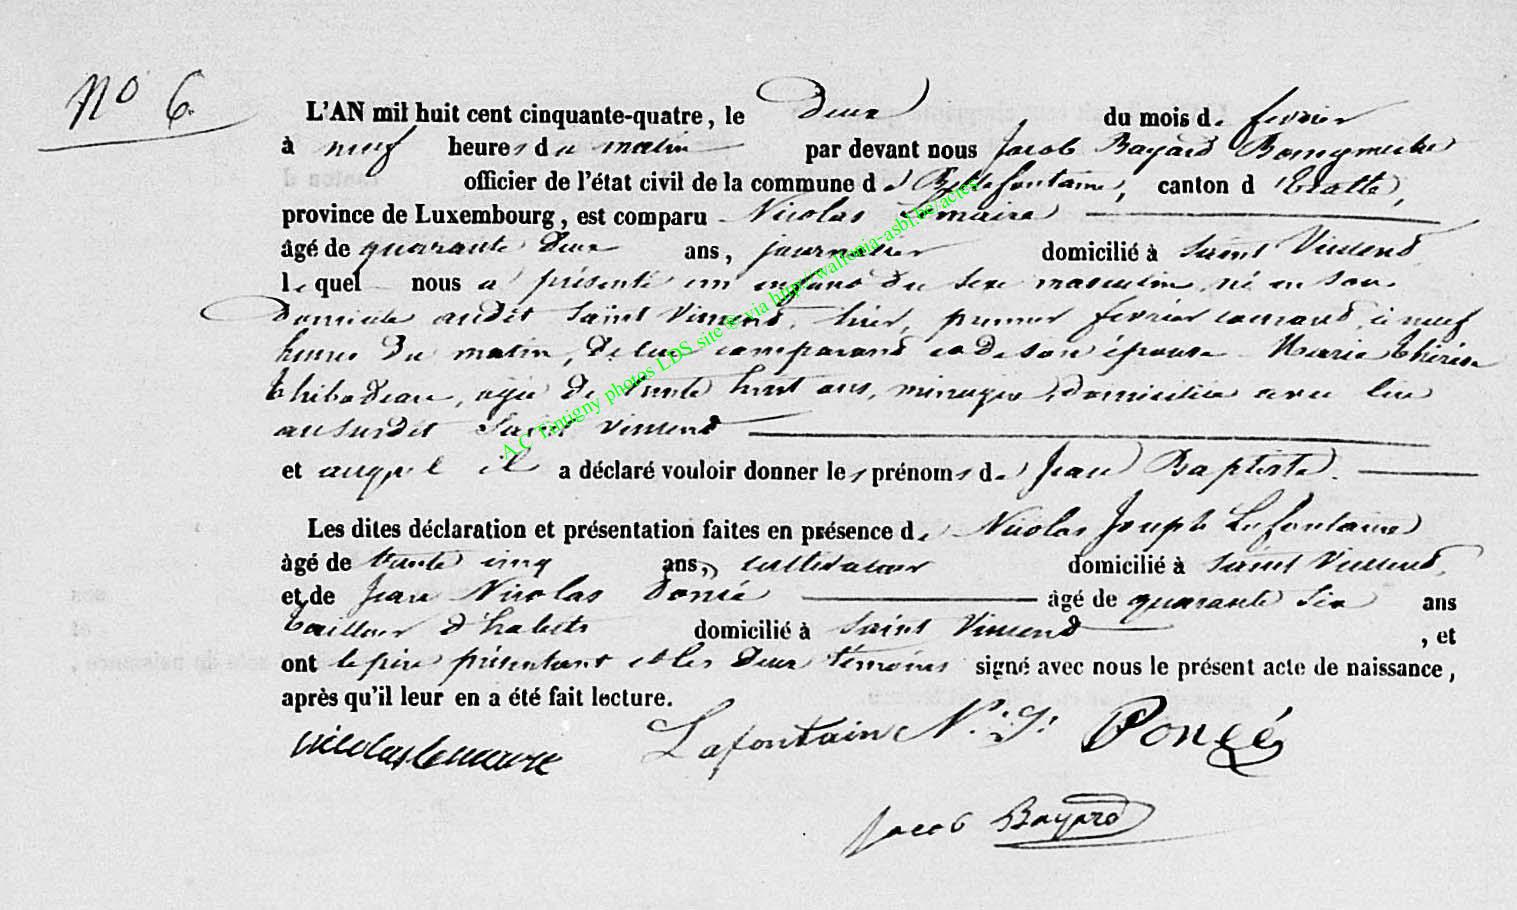 No 6.
L'AN mil huit cent cinquante-quatre, le deux du mois de fevrier
à neuf heures du matin par devant nous Jacob Bayard Bourgmestre
officier de l'état civil de la commune de Bellefontaine, canton d'Etalle,
province de Luxembourg, est comparu Nicolas Lemaire
âgé de quarante deux ans, journalier domicilié à Saint Vincent
lequel nous a présenté un enfant du sexe masculin, né en son
domicile audit Saint Vincent, hier, premier fevrier courant, à neuf
heures du matin, de lui comparant et de son épouse Marie Thérèse
Thibodeau, agée de trente huit ans, ménagère, domiciliée avec lui
au susdit Saint Vincent
et auquel il a déclaré vouloir donner les prénoms de Jean Baptiste.
Les dites déclaration et présentation faites en présence de Nicolas Joseph Lafontaine
âgé de trente cinq ans, cultivateur domicilié à Saint Vincent,
et de Jean Nicolas Poncé âgé de quarante six ans
tailleur d'habits domicilié à Saint Vincent, et
ont le père présentant et les deux témoins signé avec nous le présent acte de naissance,
après qu'il leur en a été fait lecture.
nicolas lemaire Lafontaine N. J. Poncé
Jacob Bayard
A.C Tintigny photos LDS site @ via http://wallonia-asbl.be/actes